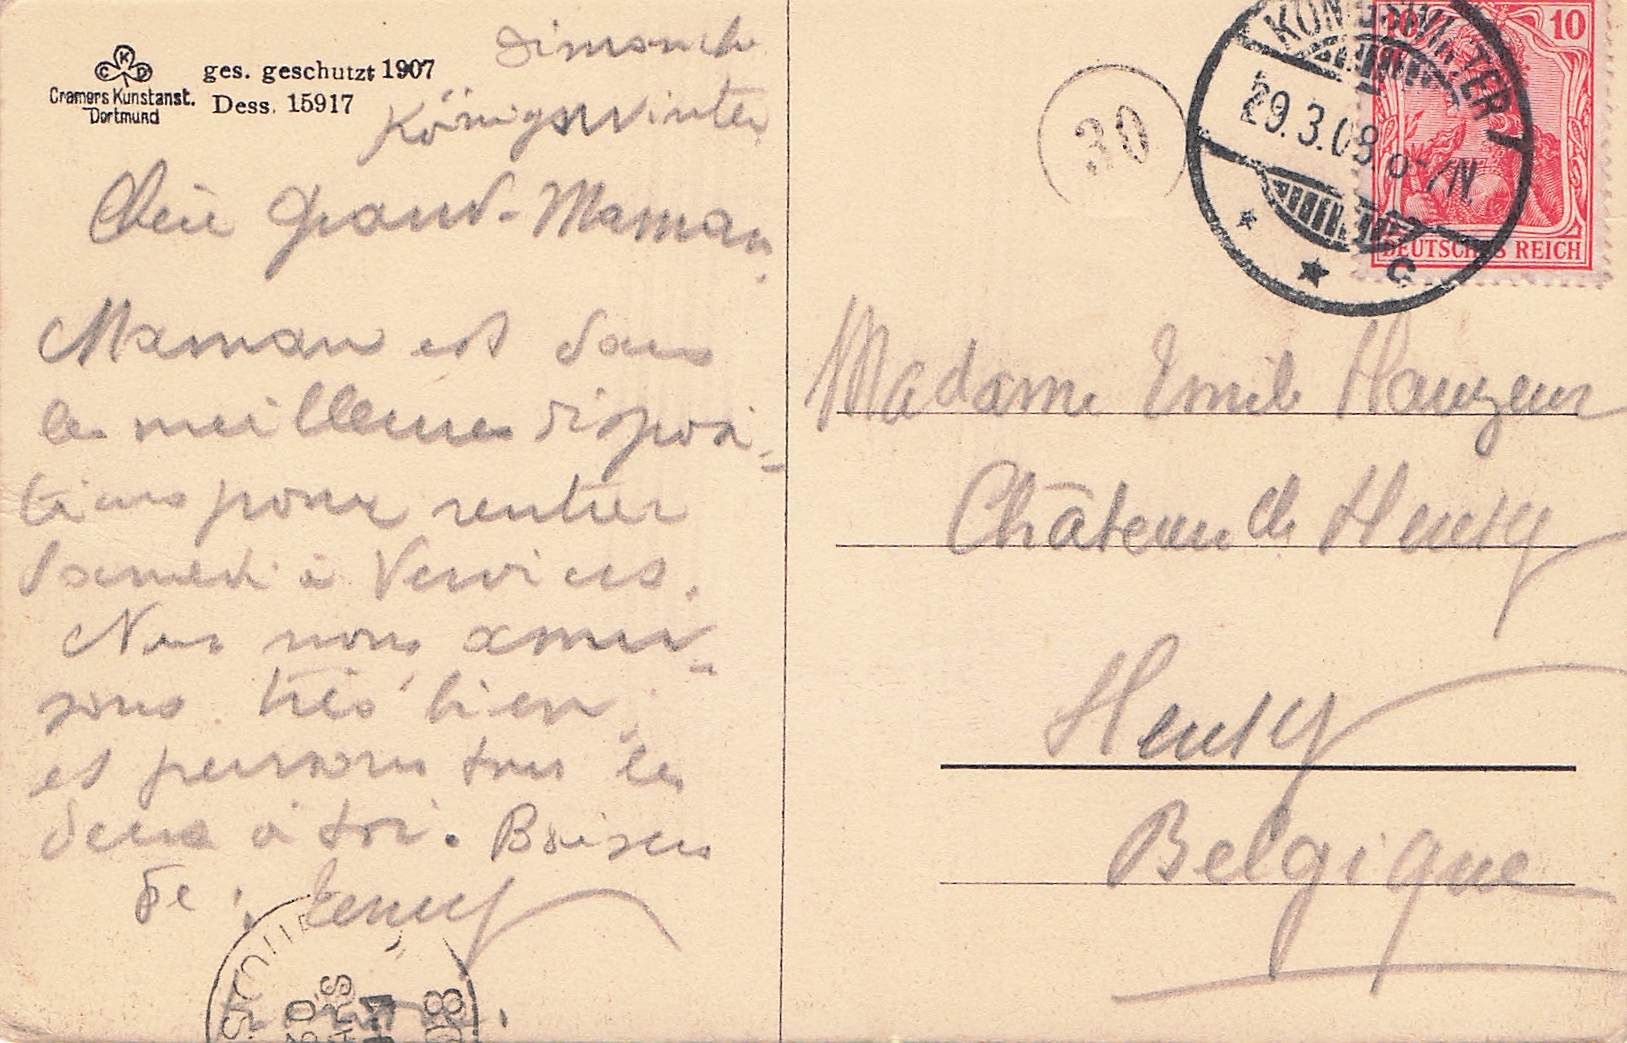 CKD
Cramers Kunstanst.
Dortmund
ges. geschutzt 1907
Dess. 15917
Dimanche
Königswinter
Chère Grand-Maman,
Maman est dans
les meilleures disposi-
tions pour rentrer
Samedi à Verviers.
Nous nous amu-
sons très bien,
et pensons tous les
deux à toi. Baisers
de : Jenny
30
KÖNIGSWINTER
29.3.08. 6-7N.
* * c
10
DEUTSCHES REICH
Madame Emile Hauzeur
Château de Heusy
Heusy
Belgique
08